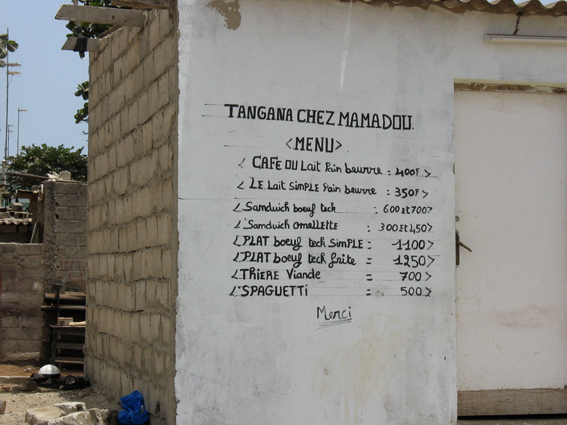 TANGANA CHEZ MAMADOU.
<MENU>
< CAFE OU Lait Pain beurre : 400F>
< LE Lait SiMPLE Pain beurre : 350F>
< Sandwich boeuf tech : 600 et 700>
< Sandwich omellette : 300 et 450>
< PLAT boeuf tech SiMPLE = 1100>
< PLAT boeuf tech frite = 1250>
< THiERE Viande = 700>
< SPAGUETTi = 500>
Merci